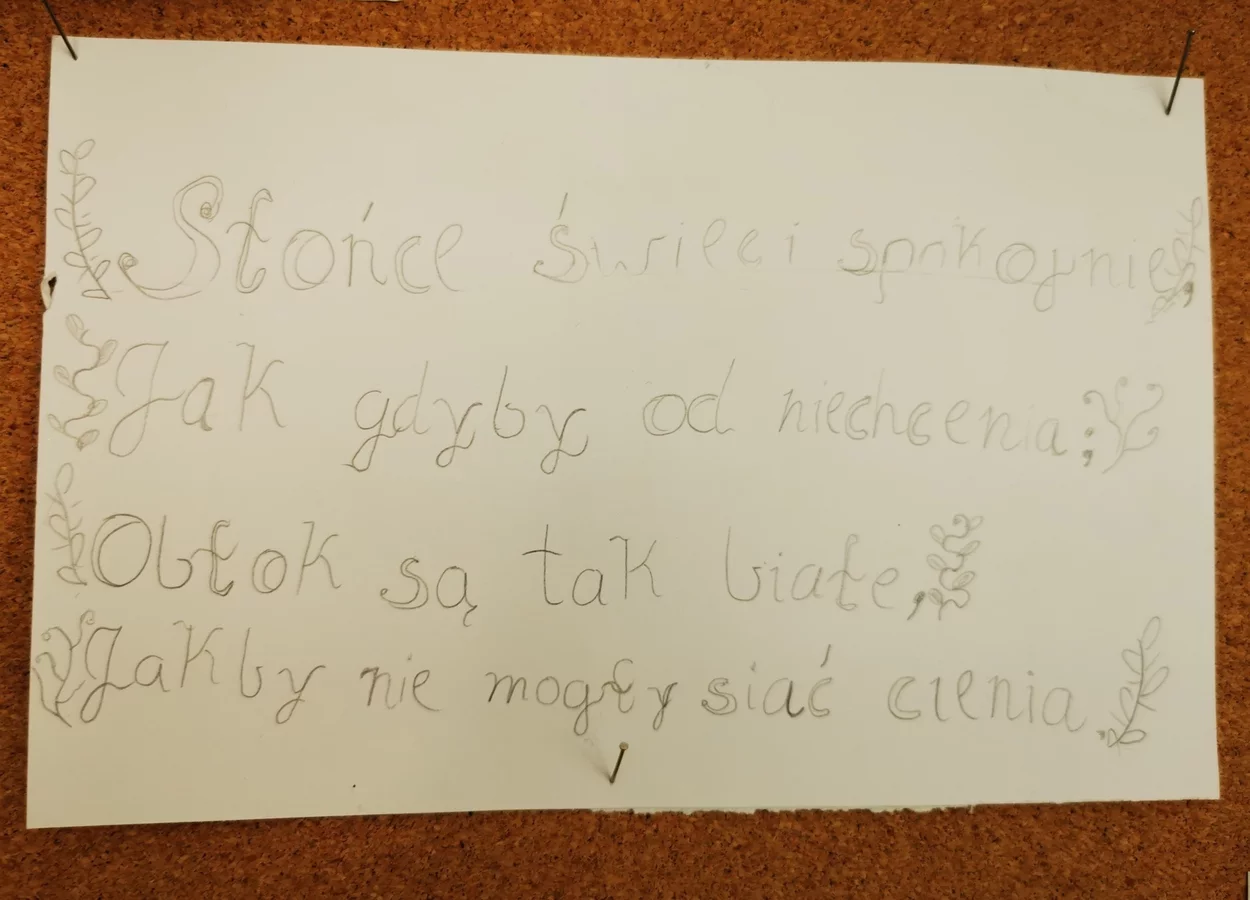 Słońce świeci spokojnie,
Jak gdyby od niechcenia;
Obłok są tak białe,
Jakby nie mogły siać cienia.